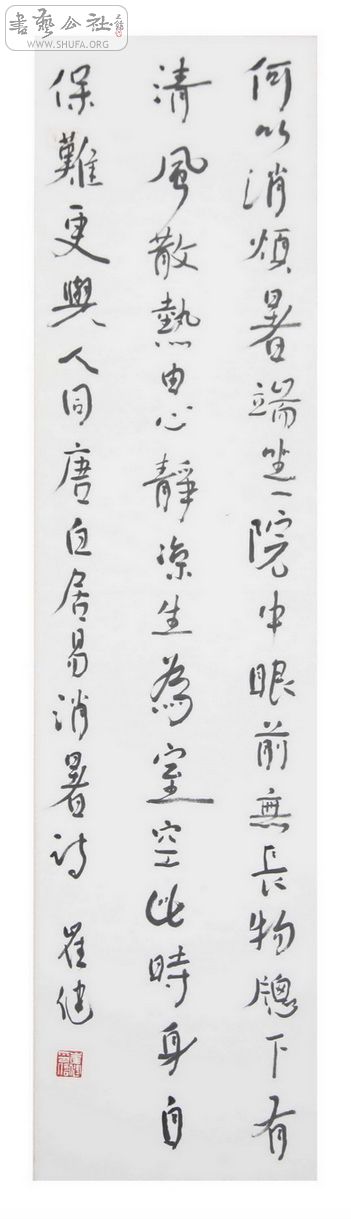 書藝公社
WWW.SHUFA.ORG
何以消煩暑端坐一院中眼前無長物窗下有
清風散熱由心靜涼生為室空此時身自
保難更與人同唐白居易消暑诗 崔健